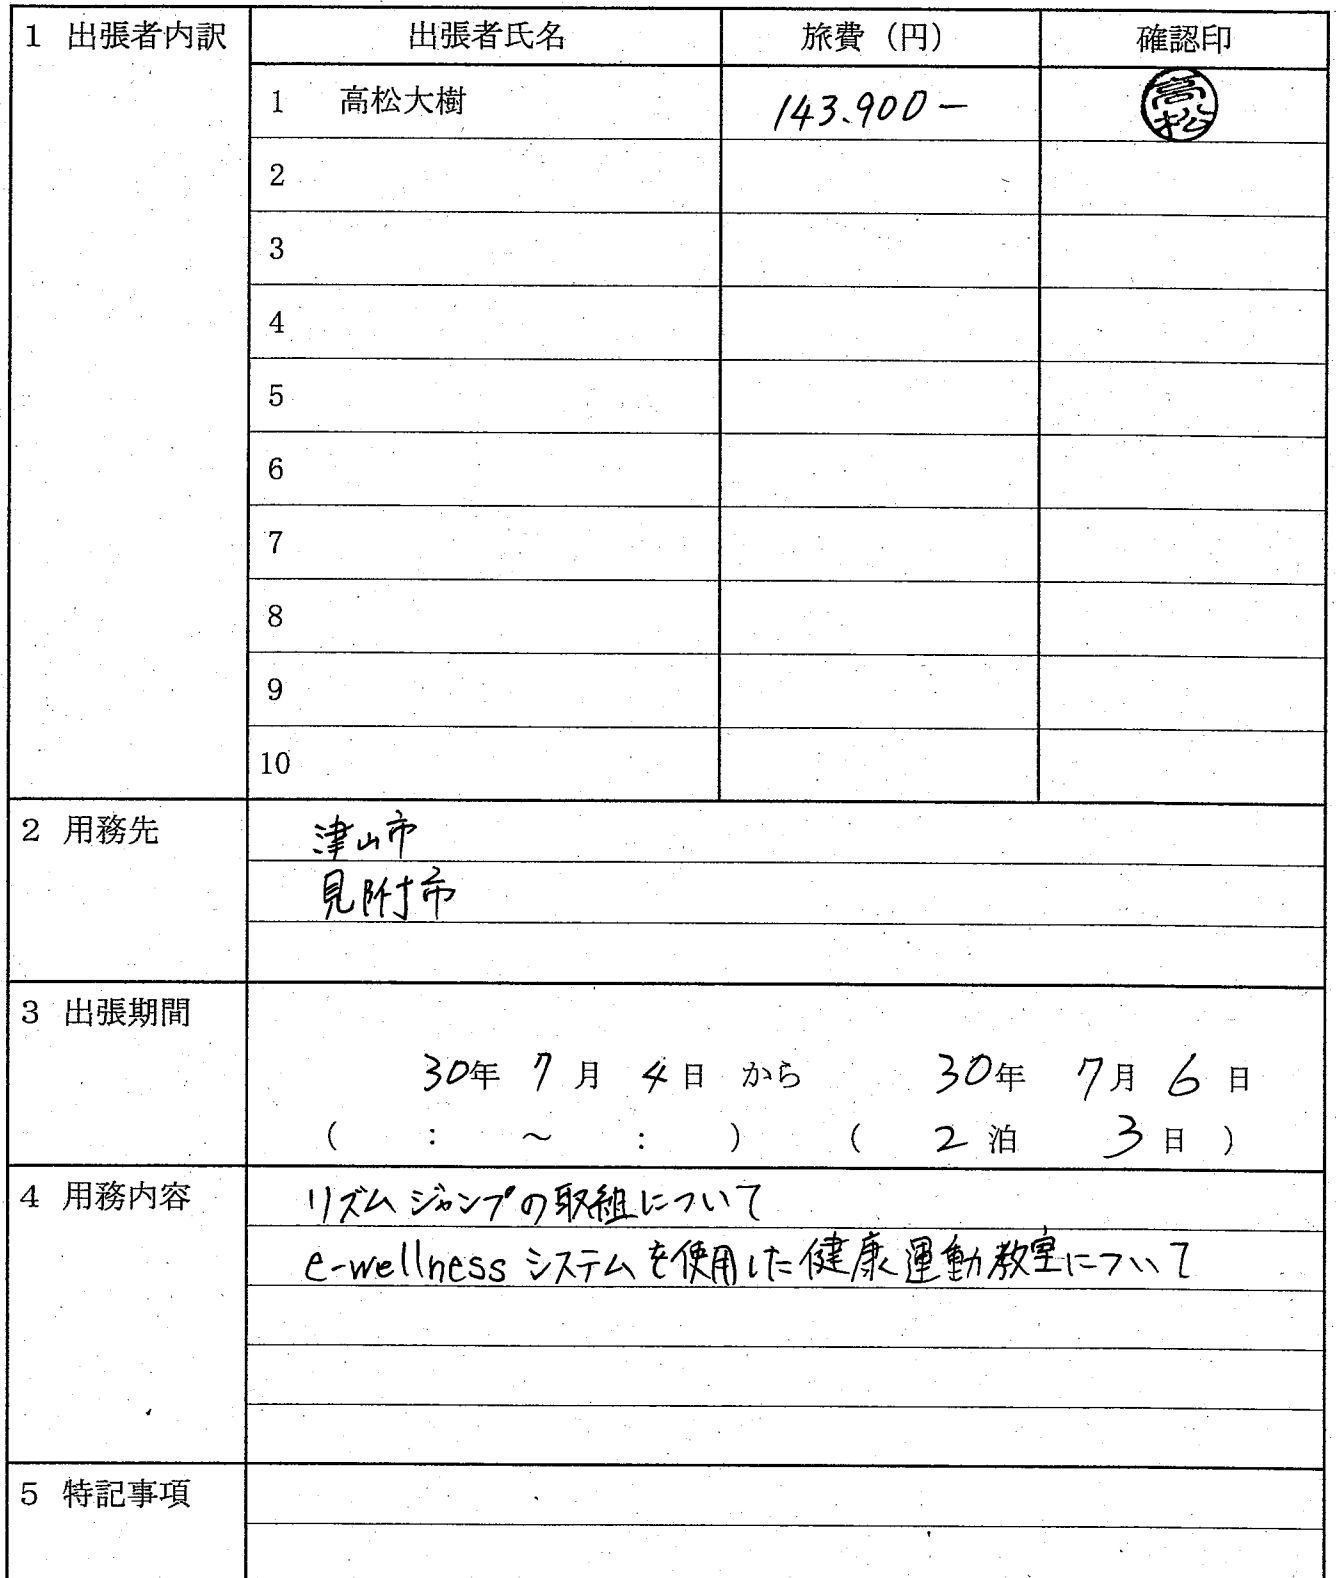 1 出張者内訳 出張者氏名 旅費（円） 確認印
1 高松大樹 143.900− 高松
2
3
4
5
6
7
8
9
10
2 用務先 津山市
見附市
3 出張期間
30年 7月 4日 から 30年 7月 6日
（ : ～ : ） （ 2泊 3日 ）
4 用務内容 リズムジャンプの取組について
e-wellnessシステムを使用した健康運動教室について
5 特記事項